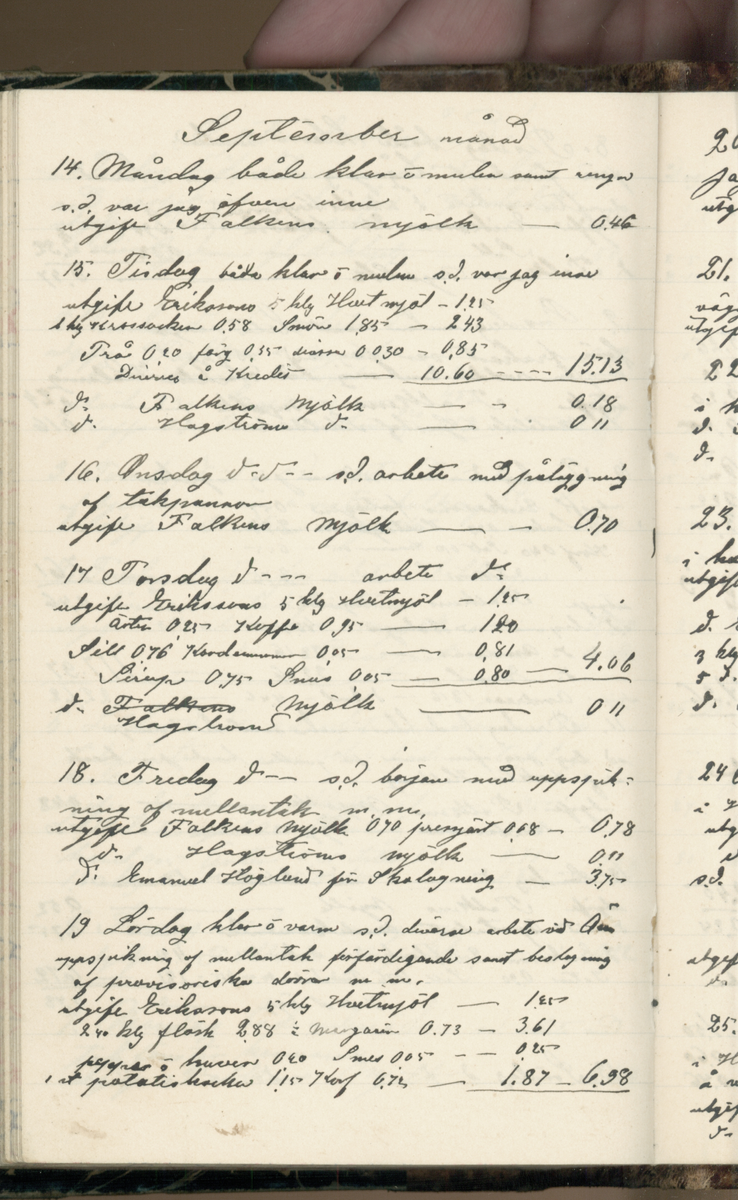 September månad
14. Måndag både klar o mulen samt regn
s.d. var jag äfven inne
utgift Falkens mjölk — 0.46
15. Tisdag båda klar o mulen s.d. var jag inne
utgift Erikssons 5 klg Hvetmjöl – 1.25
1 klg Krossocker 0.58 Smör 1.85 – 2.43
Trå 0 20 färg 0.35 0 0.30 – 0.85
Diverse å Kredit — 10.60 ---- 15.13
d:o Falkens Mjölk — - 0.18
d:o Hagströms d:o - 0 11
16. Onsdag d:o d:o -- s.d. arbete med påläggning
af takpannor
utgift Falkens Mjölk — - 0.70
17 Torsdag d:o --- arbete d:o
utgift Erikssons 5 klg Hvetmjöl – 1.25
ärter 0 25 Kaffe 0.95 — 1.20
Sill 0.76 Kardemumma 0 05 — 0.81
Sirup 0.75 Snus 0 05 — 0.80 — 4.06
d:o Falkens Mjölk — 0 11
Hagström
18. Fredag d:o -- s.d. början med uppspik-
ning af mellantak m. m.
utgift Falkens Mjölk 0.70 0.08 – 0.78
d:o Hagströms Mjölk — 0.11
d:o Emanuel Höglund för Skolagning – 3.75
19 Lördag klar o varm s.d. diverse arbete vid
uppspikning af mellantak förfärdigande samt beslagning
af provisoriska dörrar m. m.
utgift Erikssons 5 klg Hvetmjöl — 1.25
2.40 klg fläsk 2.88 Margarin 0.73 – 3.61
0.20 0 05 -- 0.25
potatis 1.15 Korf 0.72 — 1.87 – 6.98
21.
23.
25.